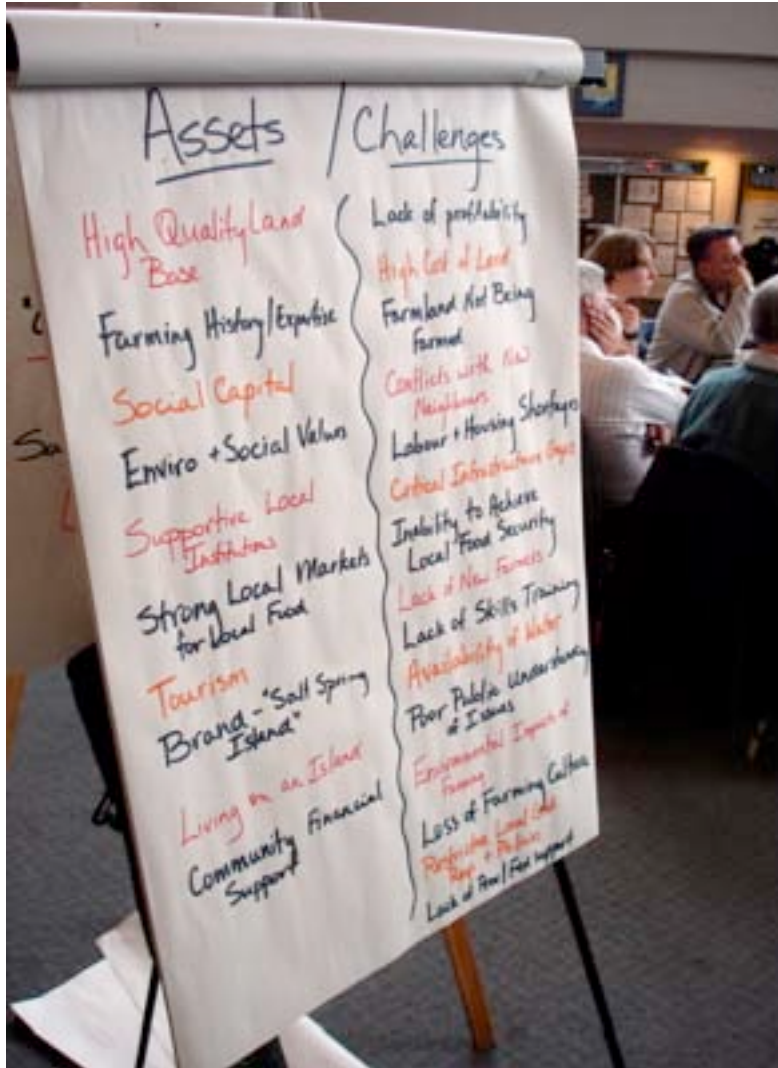 Assets / Challenges
High Quality Land
Base
Farming History/Expertise
Social Capital
Enviro + Social Values
Supportive Local
Institutions
Strong Local Markets
for Local Food
Tourism
Brand - "Salt Spring
Island"
Living on an Island
Community Financial
Support
Lack of profitability
High Cost of Land
Farmland Not Being
Farmed
Conflicts with New
Neighbours
Labour + Housing Shortages
Critical Infrastructure Gaps
Inability to Achieve
Local Food Security
Lack of New Farmers
Lack of Skills Training
Availability of Water
Poor Public Understanding
of Issues
Environmental Impacts of
Farming
Loss of Farming Culture
Restrictive Local
Lack of Prov/Fed support